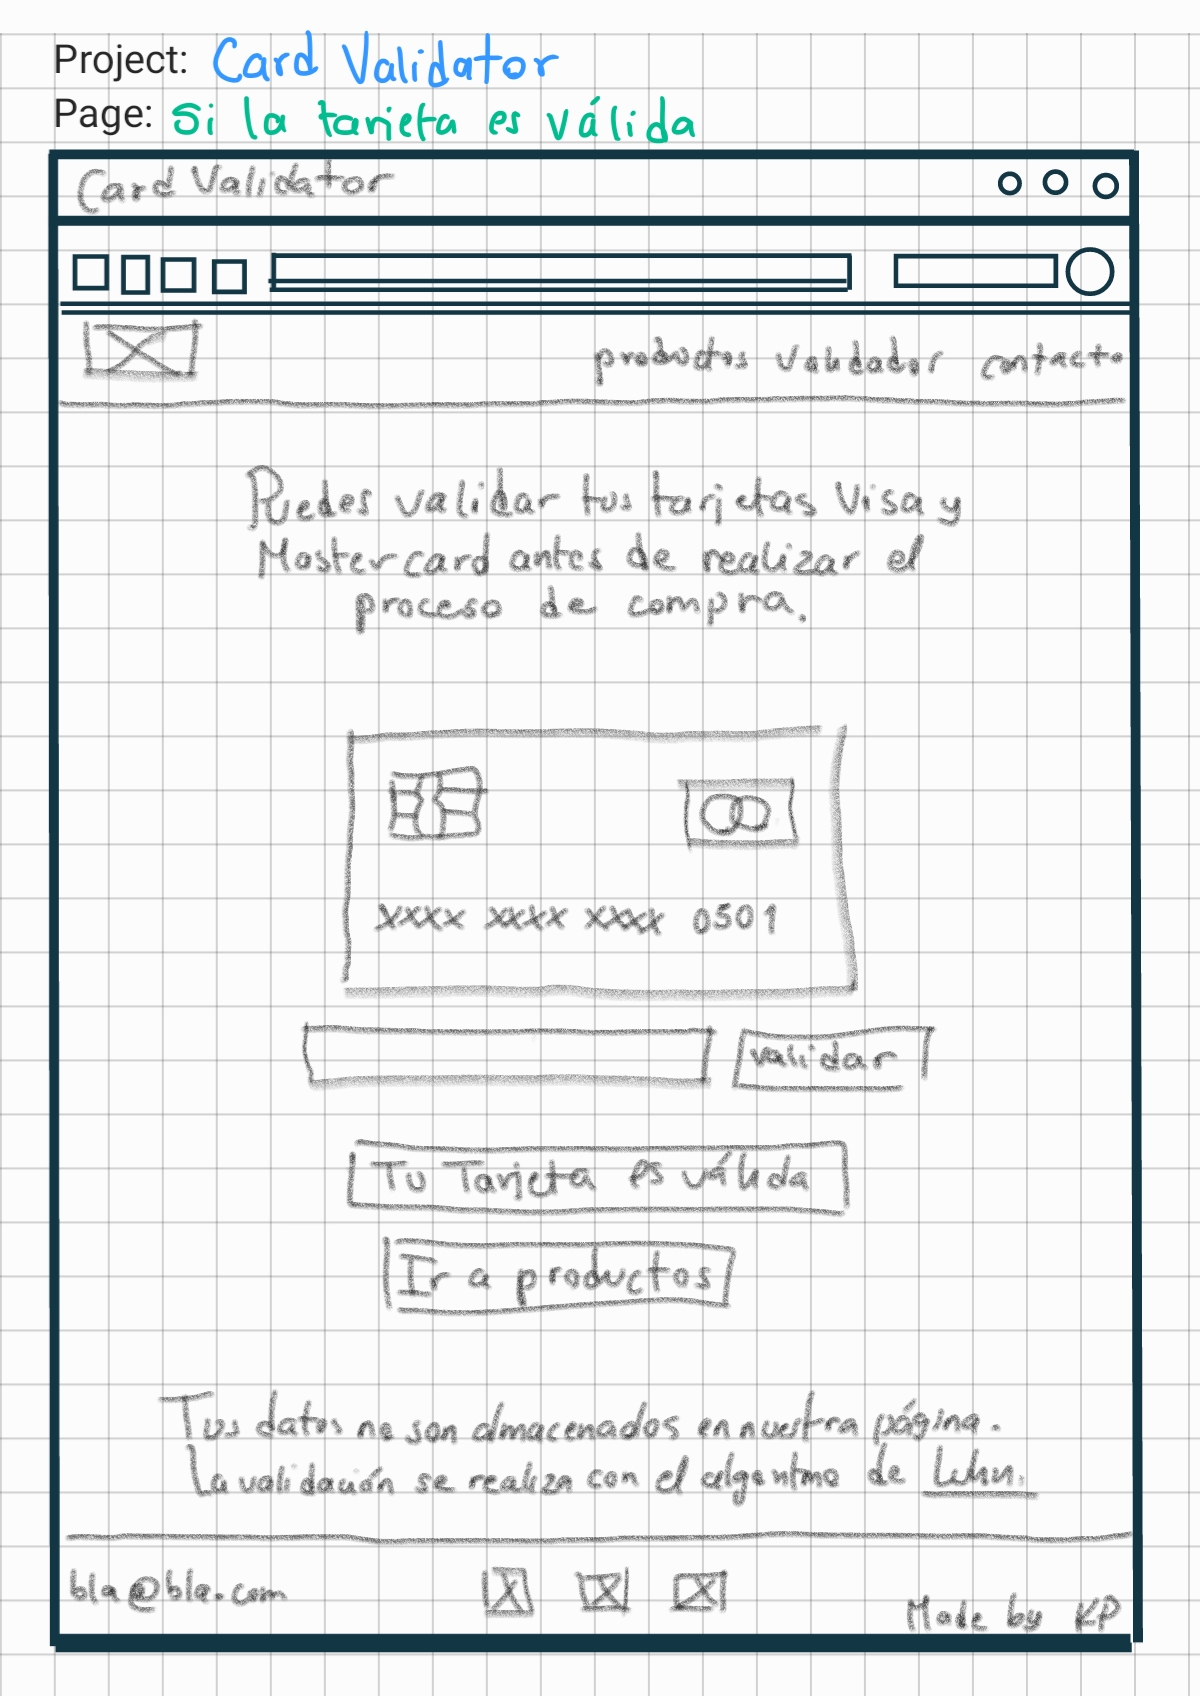 Project: Card Validator
Page: Si la tarjeta es válida
Card Validator
productos Validador contacto
Puedes validar tus tarjetas Visa y
Mastercard antes de realizar el
proceso de compra.
xxxx xxxx xxxx 0501
validar
Tu Tarjeta es válida
Ir a productos
Tus datos no son almacenados en nuestra página.
La validación se realiza con el algoritmo de Luhn.
bla@bla.com
Made by KP